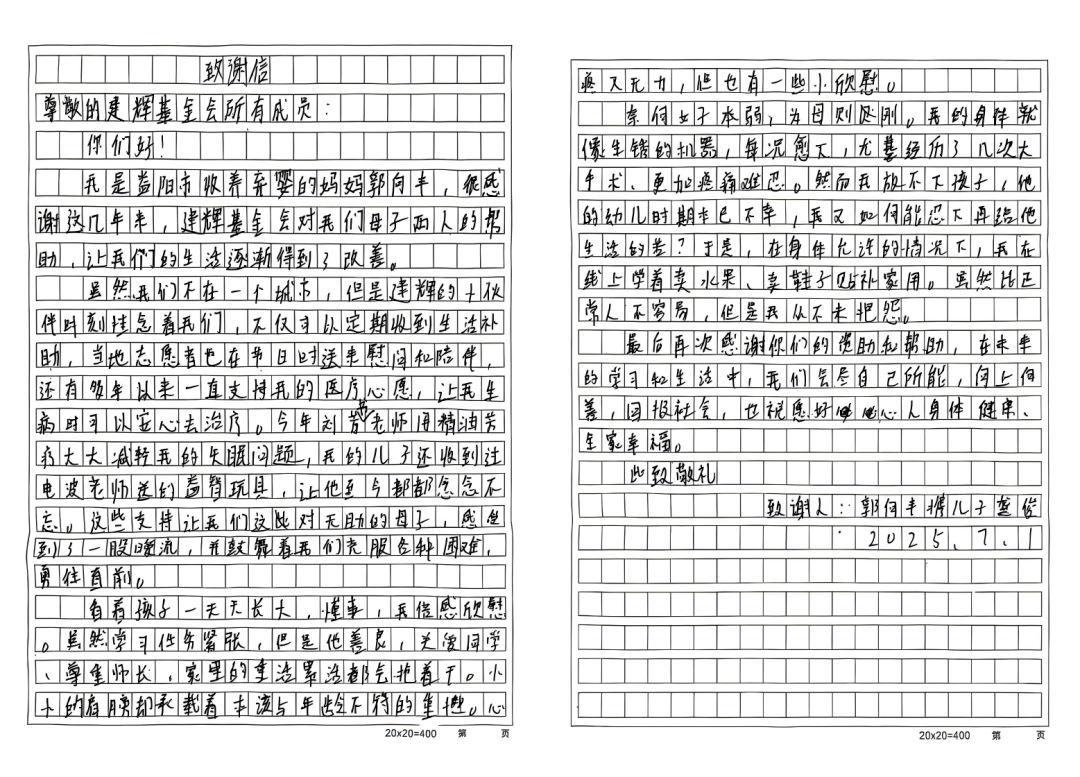 致谢信
尊敬的建辉基金会所有成员：
你们好！
我是益阳市收养弃婴的妈妈郭向丰，很感
谢这几年来，建辉基金会对我们母子两人的帮
助，让我们的生活逐渐得到了改善。
虽然我们不在一个城市，但是建辉的小伙
伴时刻挂念着我们，不仅可以定期收到生活补
助，当地志愿者也在节日时送来慰问和陪伴，
还有多年以来一直支持我的医疗心愿，让我生
病时可以安心去治疗。今年刘芳老师用精油芳
疗大大减轻我的失眠问题，我的儿子还收到过
电波老师送的益智玩具，让他至今都都念念不
忘。这些支持让我们这些对无助的母子，感坐
到了一股暖流，并鼓舞着我们克服各种困难，
勇往直前。
看着孩子一天天长大，懂事，我倍感欣慰
。虽然学习任务紧张，但是他善良，关爱同学
、尊重师长，家里的重活累活都会抢着干。小
小的肩膀却承载着本该与年龄不符的重担。心
疼又无力，但也有一些小欣慰。
奈何女子本弱，为母则刚。我的身体就
像生锈的机器，每况愈下，尤其经历了几次大
手术、更加疼痛难忍。然而我放不下孩子，他
的幼儿时期本已不幸，我又如何能忍下再给他
生活的苦？于是，在身体允许的情况下，我在
线上学着卖水果、卖鞋子贴补家用。虽然比正
常人不容易，但是我从不未抱怨。
最后再次感谢你们的资助和帮助，在未来
的学习和生活中，我们会尽自己所能，向上向
善，回报社会，也祝愿好心人身体健康、
全家幸福。
此致敬礼
致谢人：郭向丰携儿子龚俊
2025.7.1
20x20=400 第 页
20x20=400 第 页